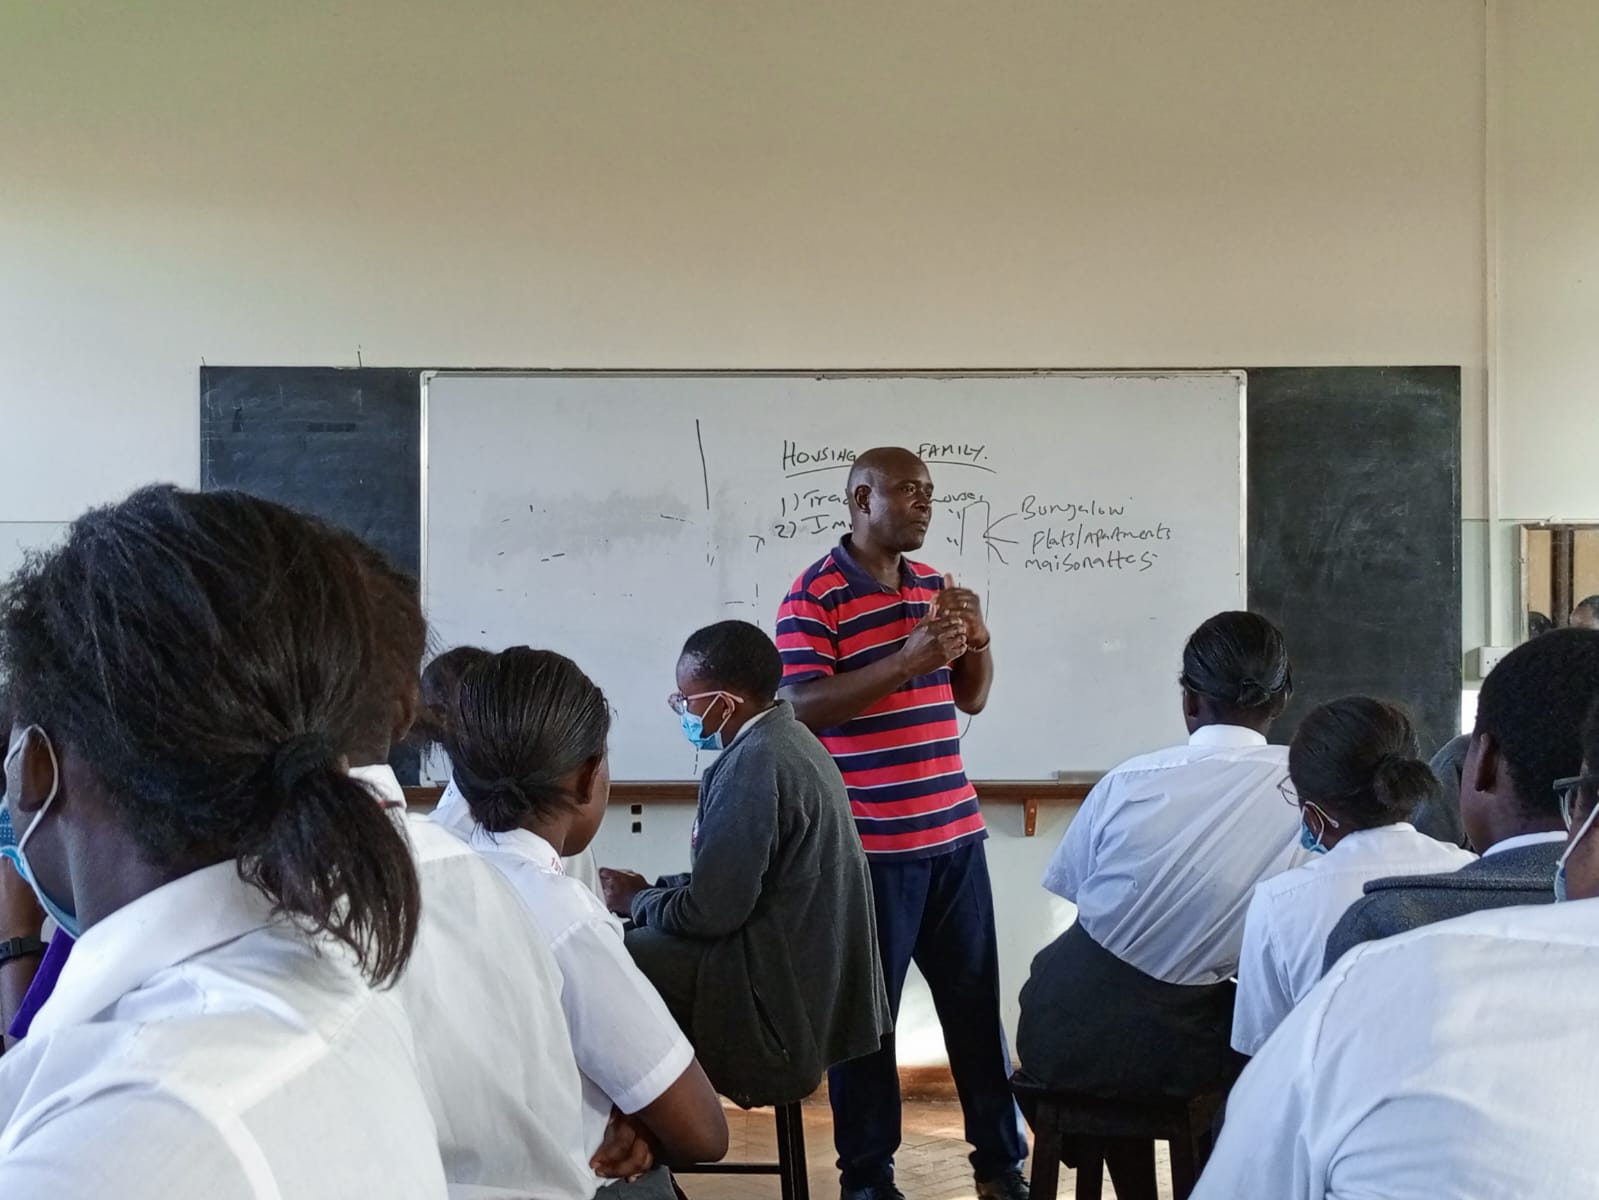 HOUSING FAMILY.
1) Trad
2) Im
Bungalow
Flats/Apartments
maisonattes